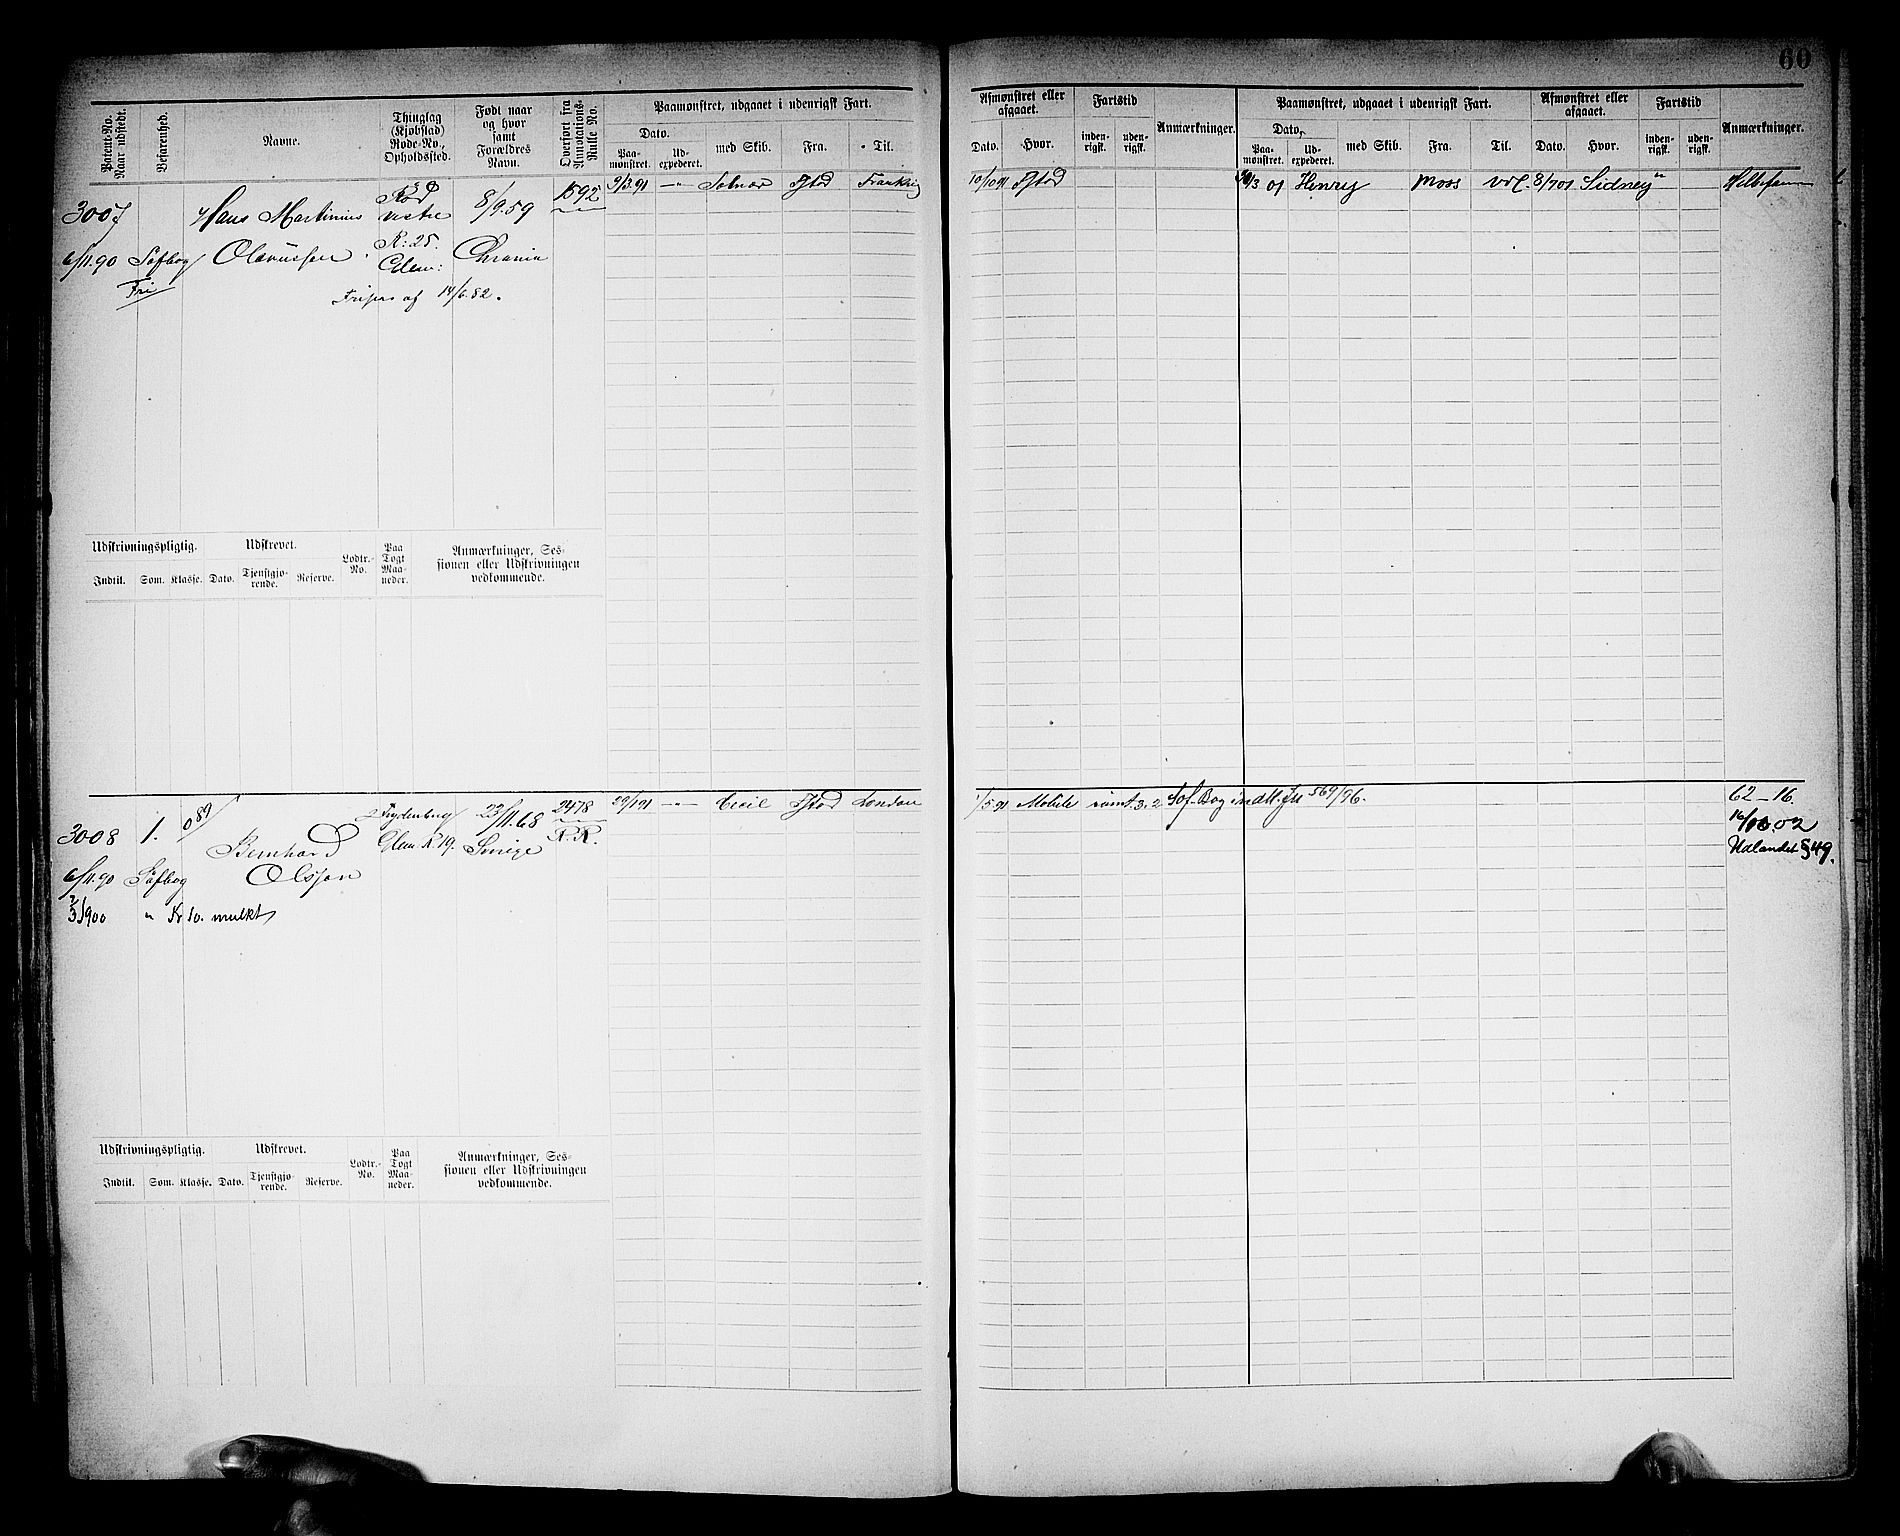 60
Patent-No. Naar udstedt.
Befarenhed.
Navne.
Thinglag (Kjøbstad) Rode-No., Opholdssted.
Født naar og hvor samt Forældres Navn.
Overført fra Annotations-Rulle No.
Paamønstret, udgaaet i udenrigsk Fart.
Dato.
Paamønstret.
Udexpederet.
med Skib.
Fra.
Til.
Afmønstret eller afgaaet.
Dato.
Hvor.
Fartstid
indenrigsk.
udenrigsk.
Anmærkninger.
Paamønstret, udgaaet i udenrigsk Fart.
Dato,
Paamønstret.
Udexpederet.
med Skib.
Fra.
Til.
Afmønstret eller afgaaet.
Dato.
Hvor.
Fartstid
indenrigsk.
udenrigsk.
Anmærkninger.
3007
Hans Martinius
vestre
8/9.59
1592
9/3.91 -"- Solnar Fstad
10/10 91 Fstad
/3 01 Henry Moss 8/7 01 Sidney
6/11.90 Søfbog Olavussen
R: 25. Glem:
Chrania
Fri
Fripas af 14/6.82.
Udskrivningspligtig.
Udskrevet.
Lodtr.-No.
Paa Togt Maaneder.
Anmærkninger, Sessionen eller Udskrivningen vedkommende.
Indtil.
Som.
Klasse.
Dato.
Tjenstgjørende.
Reserve.
3008
1.
089
Bernhard
Olsson
Frydenberg
Glem. R. 19.
23/11.68
Sverige
2478
R.R.
29/1 91 -"- Cecil Fstad London
1/5 91 Mobile rømt. 3. 2 Søf-Bog indll. Jn 569/96.
62-16.
02
Udlandet § 49.
6/11.90 Søfbog
1900 " Kr 10. mulkt
Udskrivningspligtig.
Udskrevet.
Lodtr.-No.
Paa Togt Maaneder.
Anmærkninger, Sessionen eller Udskrivningen vedkommende.
Indtil.
Som.
Klasse.
Dato.
Tjenstgjørende.
Reserve.